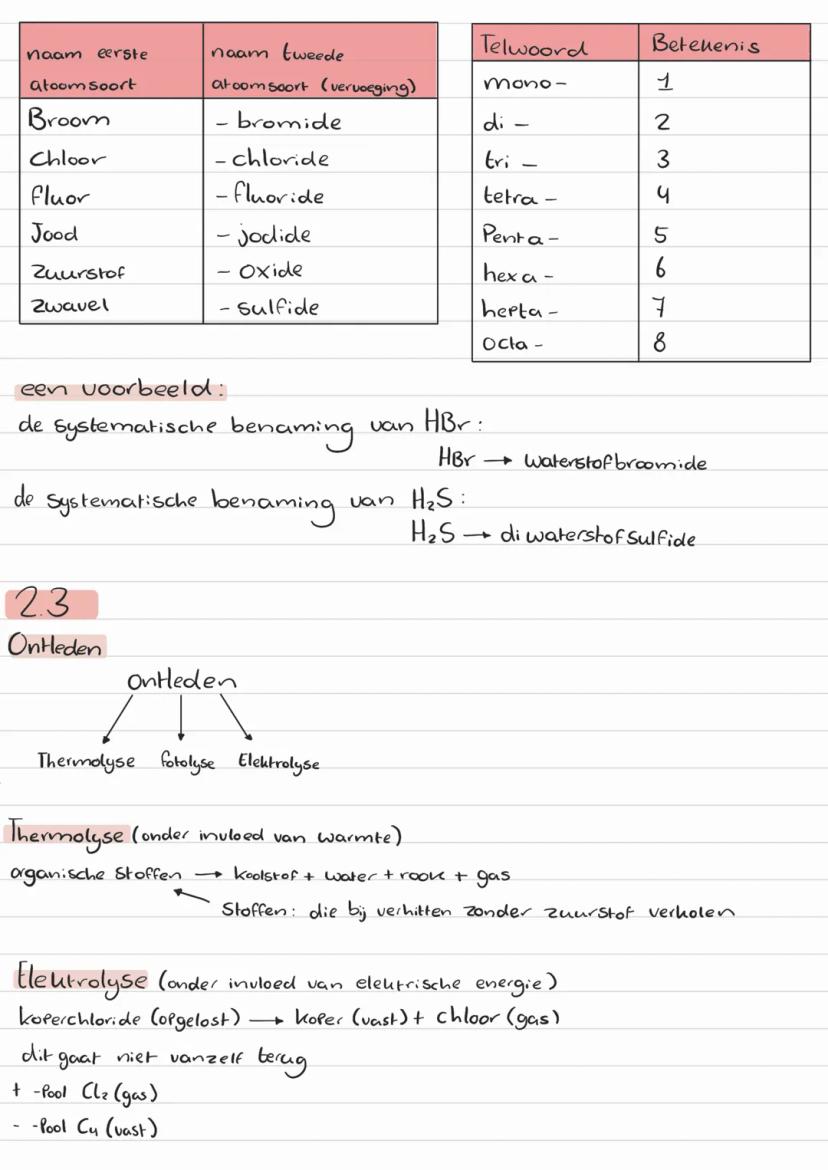 naam eerste atoomsoort | naam tweede atoomsoort (vervoeging)
Broom | - bromide
Chloor | - chloride
fluor | - fluoride
Jood | - jodide
zuurstof | - oxide
zwavel | - sulfide
Telwoord | Betekenis
mono- | 1
di - | 2
tri - | 3
tetra - | 4
Penta - | 5
hexa - | 6
hepta - | 7
octa - | 8
een voorbeeld:
de systematische benaming van HBr:
HBr → waterstofbroomide
de systematische benaming van H₂S:
H₂S → diwaterstofsulfide
2.3
Ontleden
Ontleden
Thermolyse fotolyse Elektrolyse
Thermolyse (onder invloed van warmte)
organische stoffen → koolstof + water + rook + gas
Stoffen: die bij verhitten zonder zuurstof verkolen
Elektrolyse (onder invloed van elektrische energie)
koperchloride (opgelost) → koper (vast) + chloor (gas)
dit gaat niet vanzelf terug
+ -Pool Cl₂ (gas)
- -Pool Cu (vast)